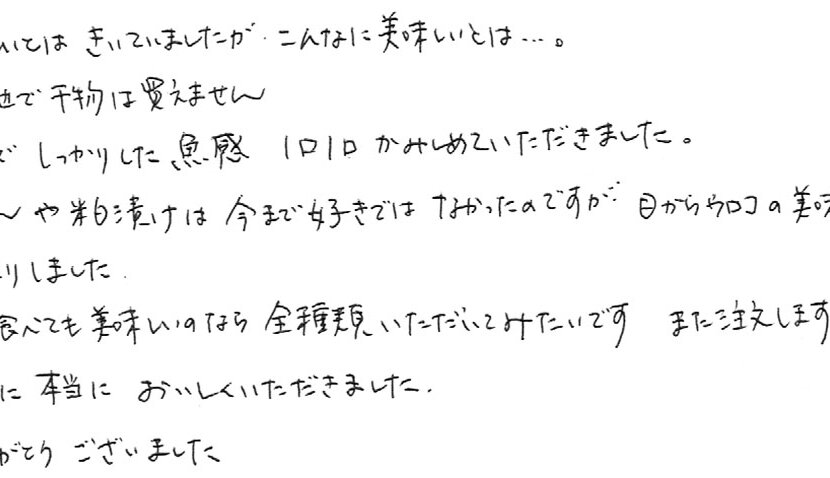 いとは きいていましたが こんなに美味いとは…。
で干物は買えません
しっかりした魚感 1口1口 かみしめていただきました。
や粕漬けは今まで好きでは なかったのですが 目からウロコの美味
りしました
食べても美味いのなら 全種類いただいてみたいです また注文します
に 本当に おいしくいただきました.
がとう ございました